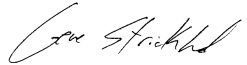 Gene Strickland